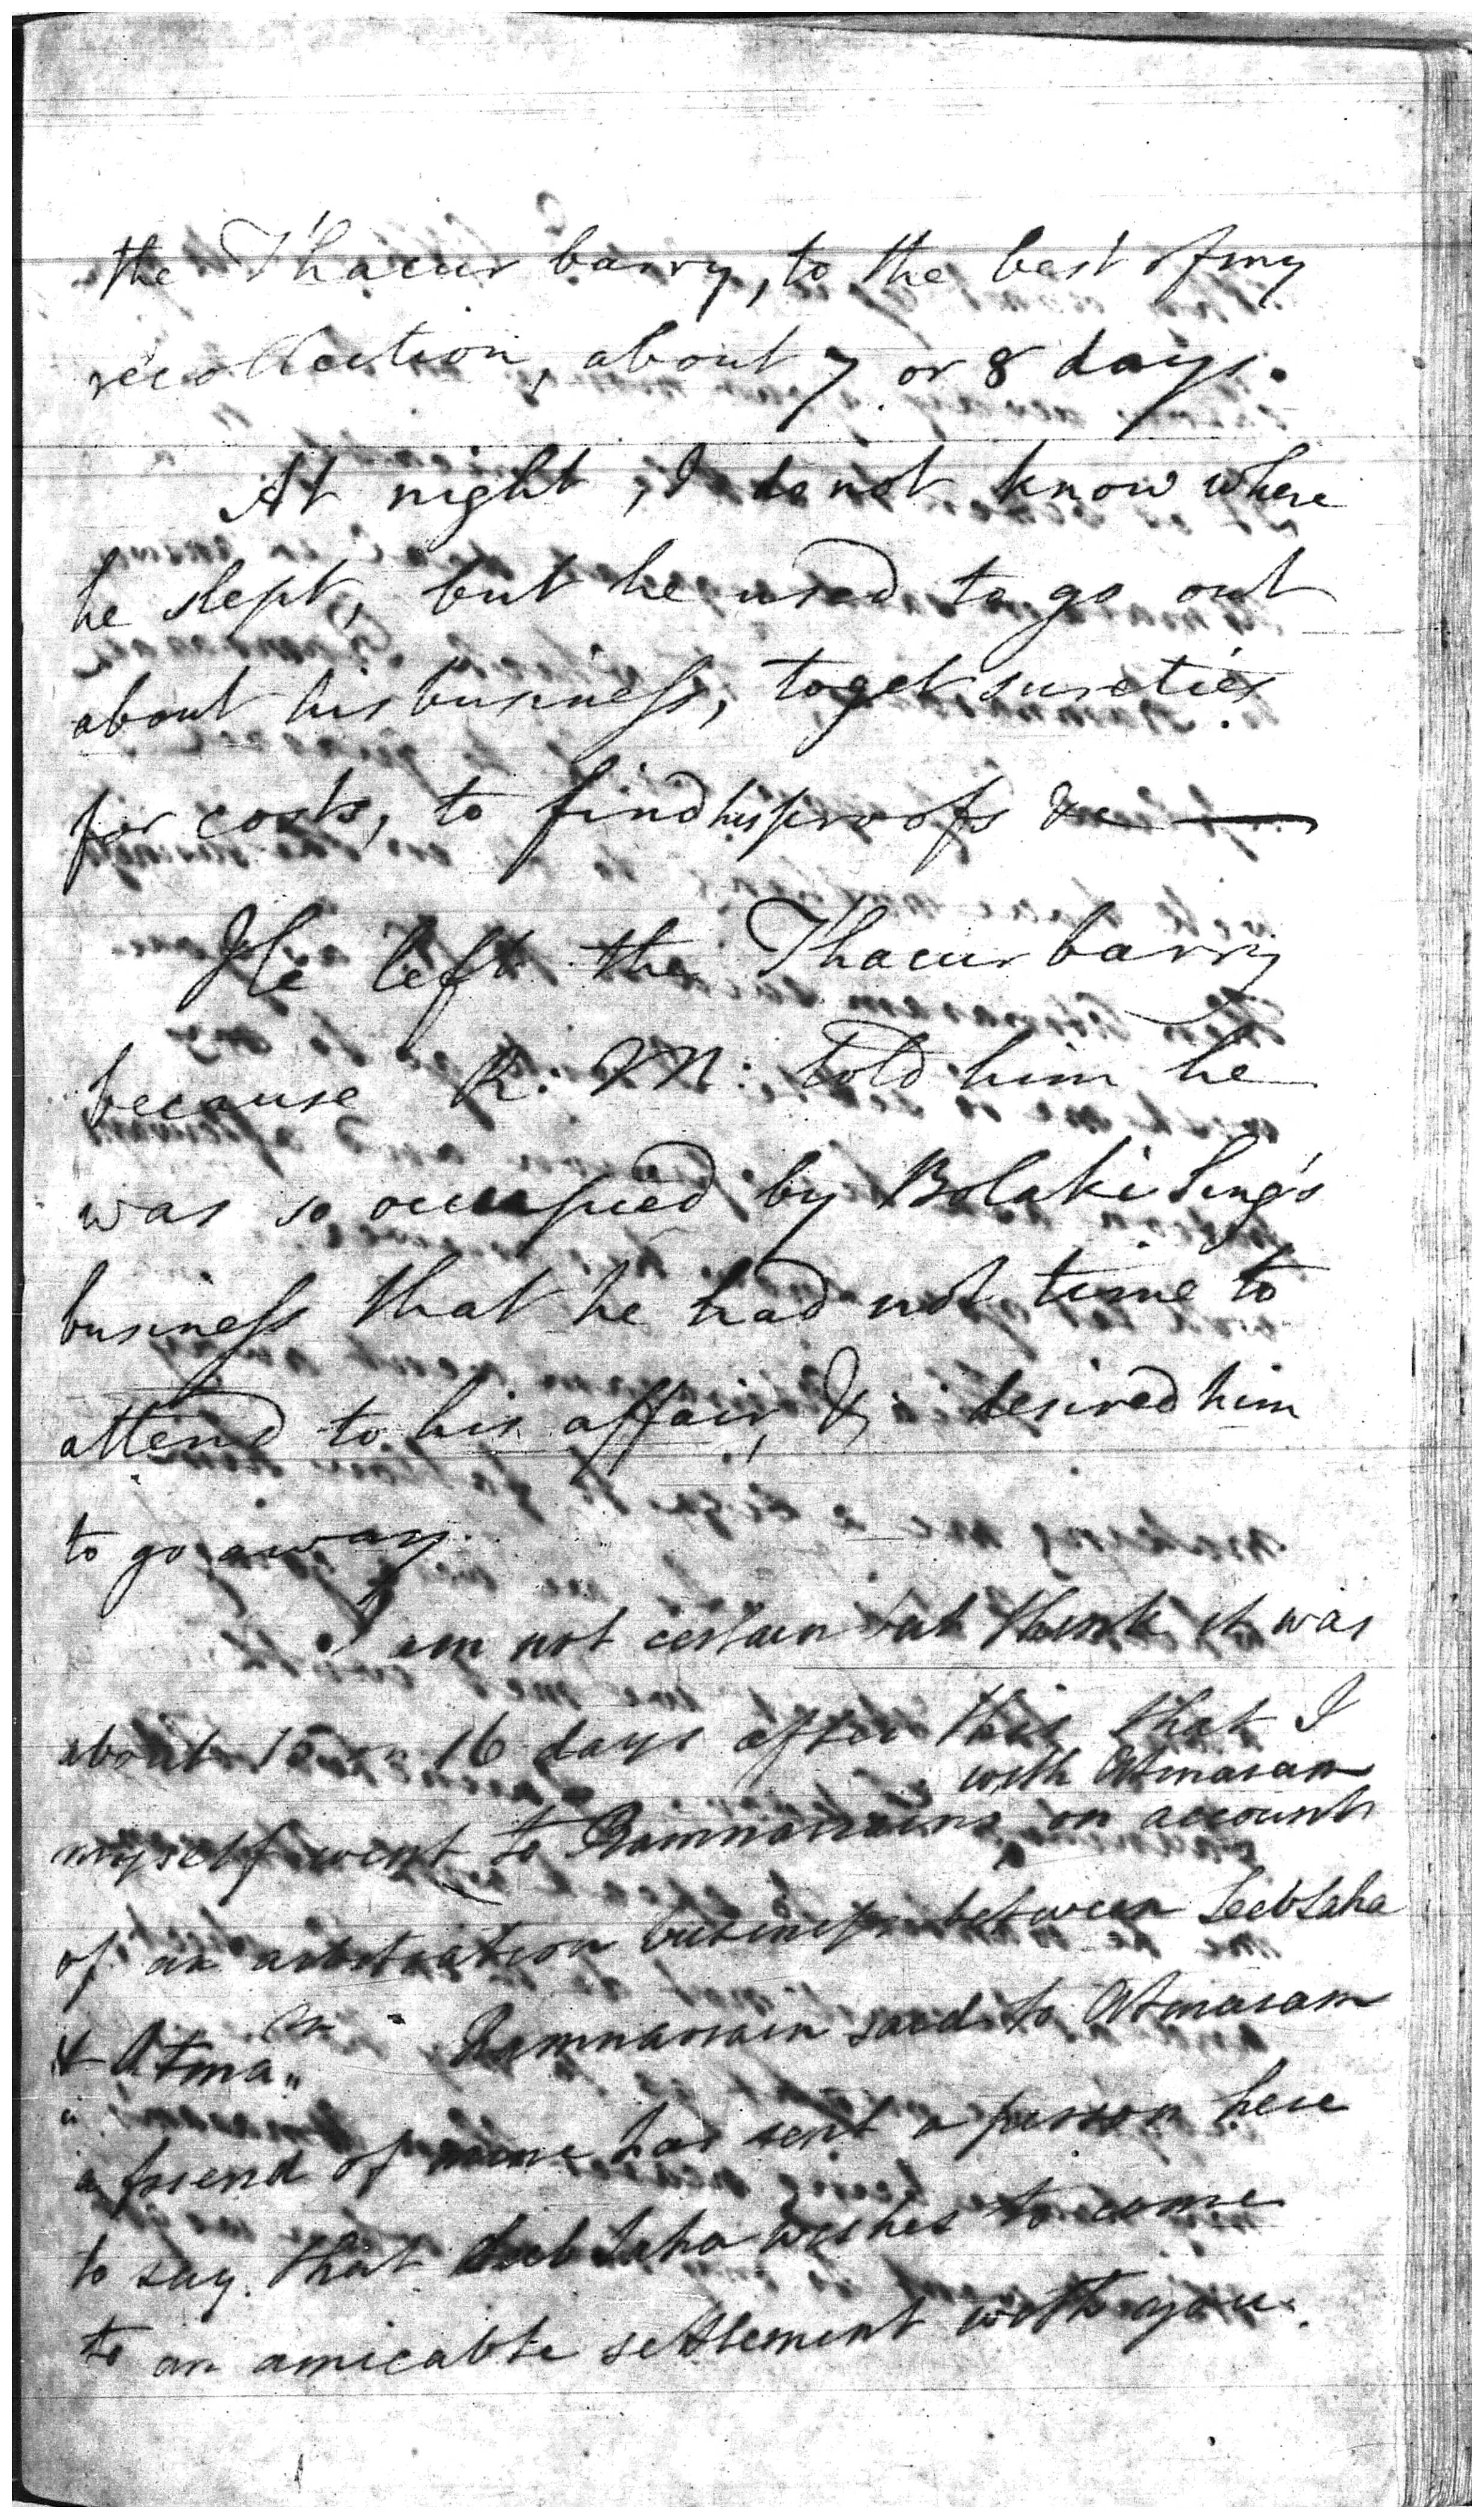 the Thacur barry, to the best of my
recollection, about 7 or 8 days.
At night, I do not know where
he slept, but he used to go out
about his business, to get sureties
for costs, to find his proofs &c —
He left the Thacur barry
because R. M: told him he
was so occupied by Bolaki Sing's
business that he had not time to
attend to his affair, & desired him
to go away.
I am not certain but think it was
about 15 or 16 days after this that I
with Atmaram
myself went to Ramnarrains on account
of an arbitration business between Seebsaha
& Atma"m Ramnarrain said to Atmaram
"a friend of mine has sent a person here
to say that Seebsaha wishes to come
to an amicable settlement with you.